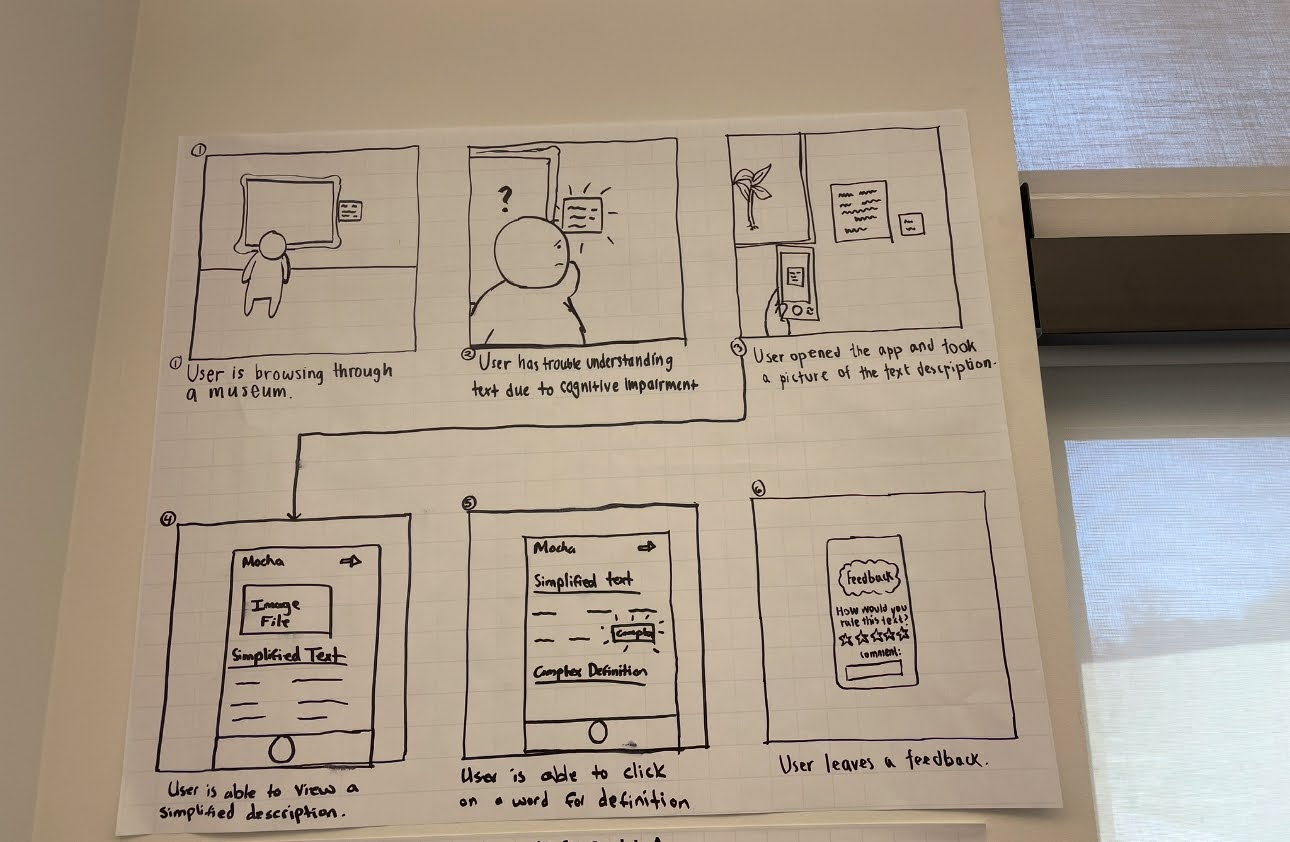 ①
① User is browsing through
a museum.
?
② User has trouble understanding
text due to cognitive impairment
③ User opened the app and took
a picture of the text description.
④
Mocha
Image
File
Simplified Text
User is able to view a
simplified description.
⑤
Mocha
Simplified text
Complex
Complex Definition
User is able to click
on a word for definition
⑥
Feedback
How would you
rate this text?
comment:
User leaves a feedback.